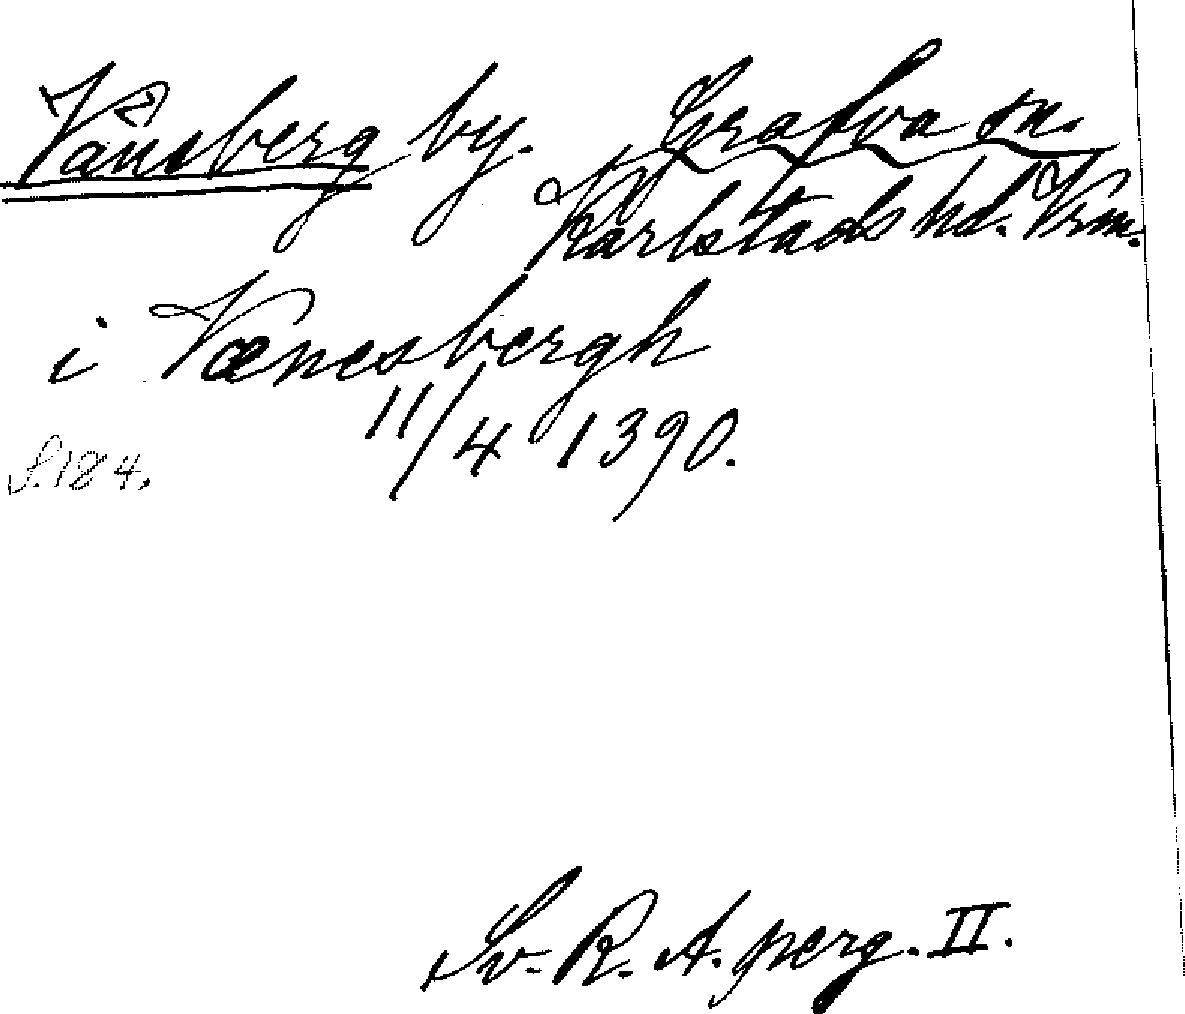 Vånsberg by. Grafva sn.
Karlstads hd. Vrm.
i Vænesbergh
11/4 1390.
S. 184.
Sv. R. A. perg. II.